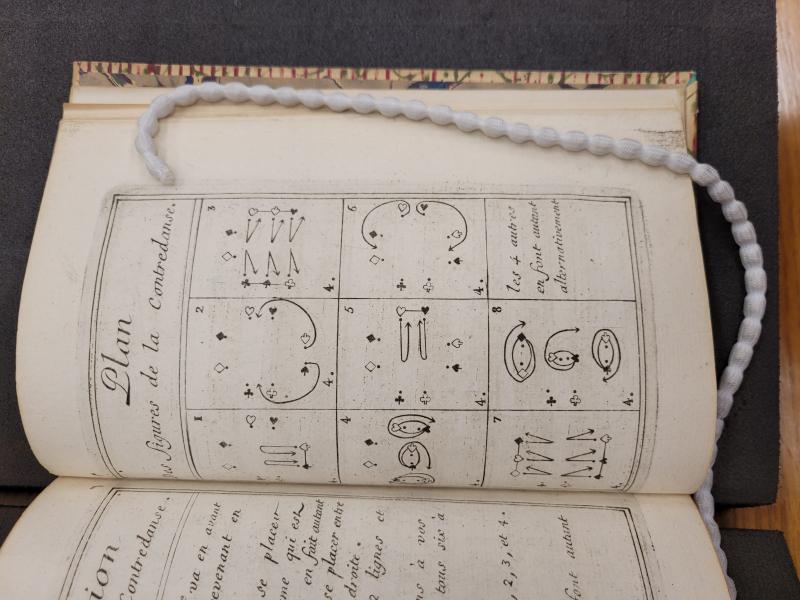 ion
Contredanse.
va en avant
evenant en
se placer
me qui est
en fait autant
se placer entre
droite.
2 lignes et
ns à vos
tous six à
, 2, 3, et 4.
font autant
Plan
es figures de la Contredanse.
1 2 3
4. 4.
4 5 6
4. 4.
7 8
4.
les 4 autres
en font autant
alternativement